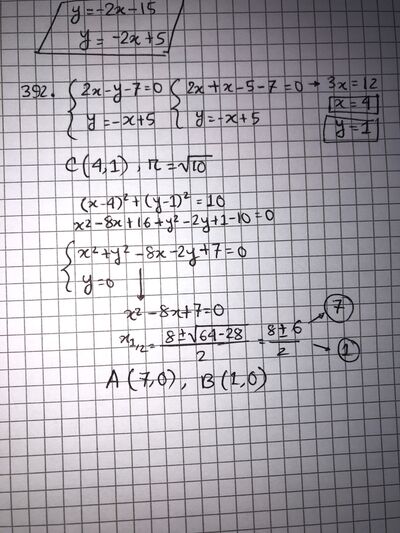 y=-2x-15
y=-2x+5
392. {2x-y-7=0 {2x+x-5-7=0 → 3x=12
{y=-x+5 {y=-x+5 x=4
y=1
C(4,1), r=√10
(x-4)²+(y-1)²=10
x²-8x+16+y²-2y+1-10=0
{x²+y²-8x-2y+7=0
{y=0 ↓
x²-8x+7=0
x₁,₂=(8±√64-28)/2=(8±6)/2 → 7 → 1
A(7,0), B(1,0)